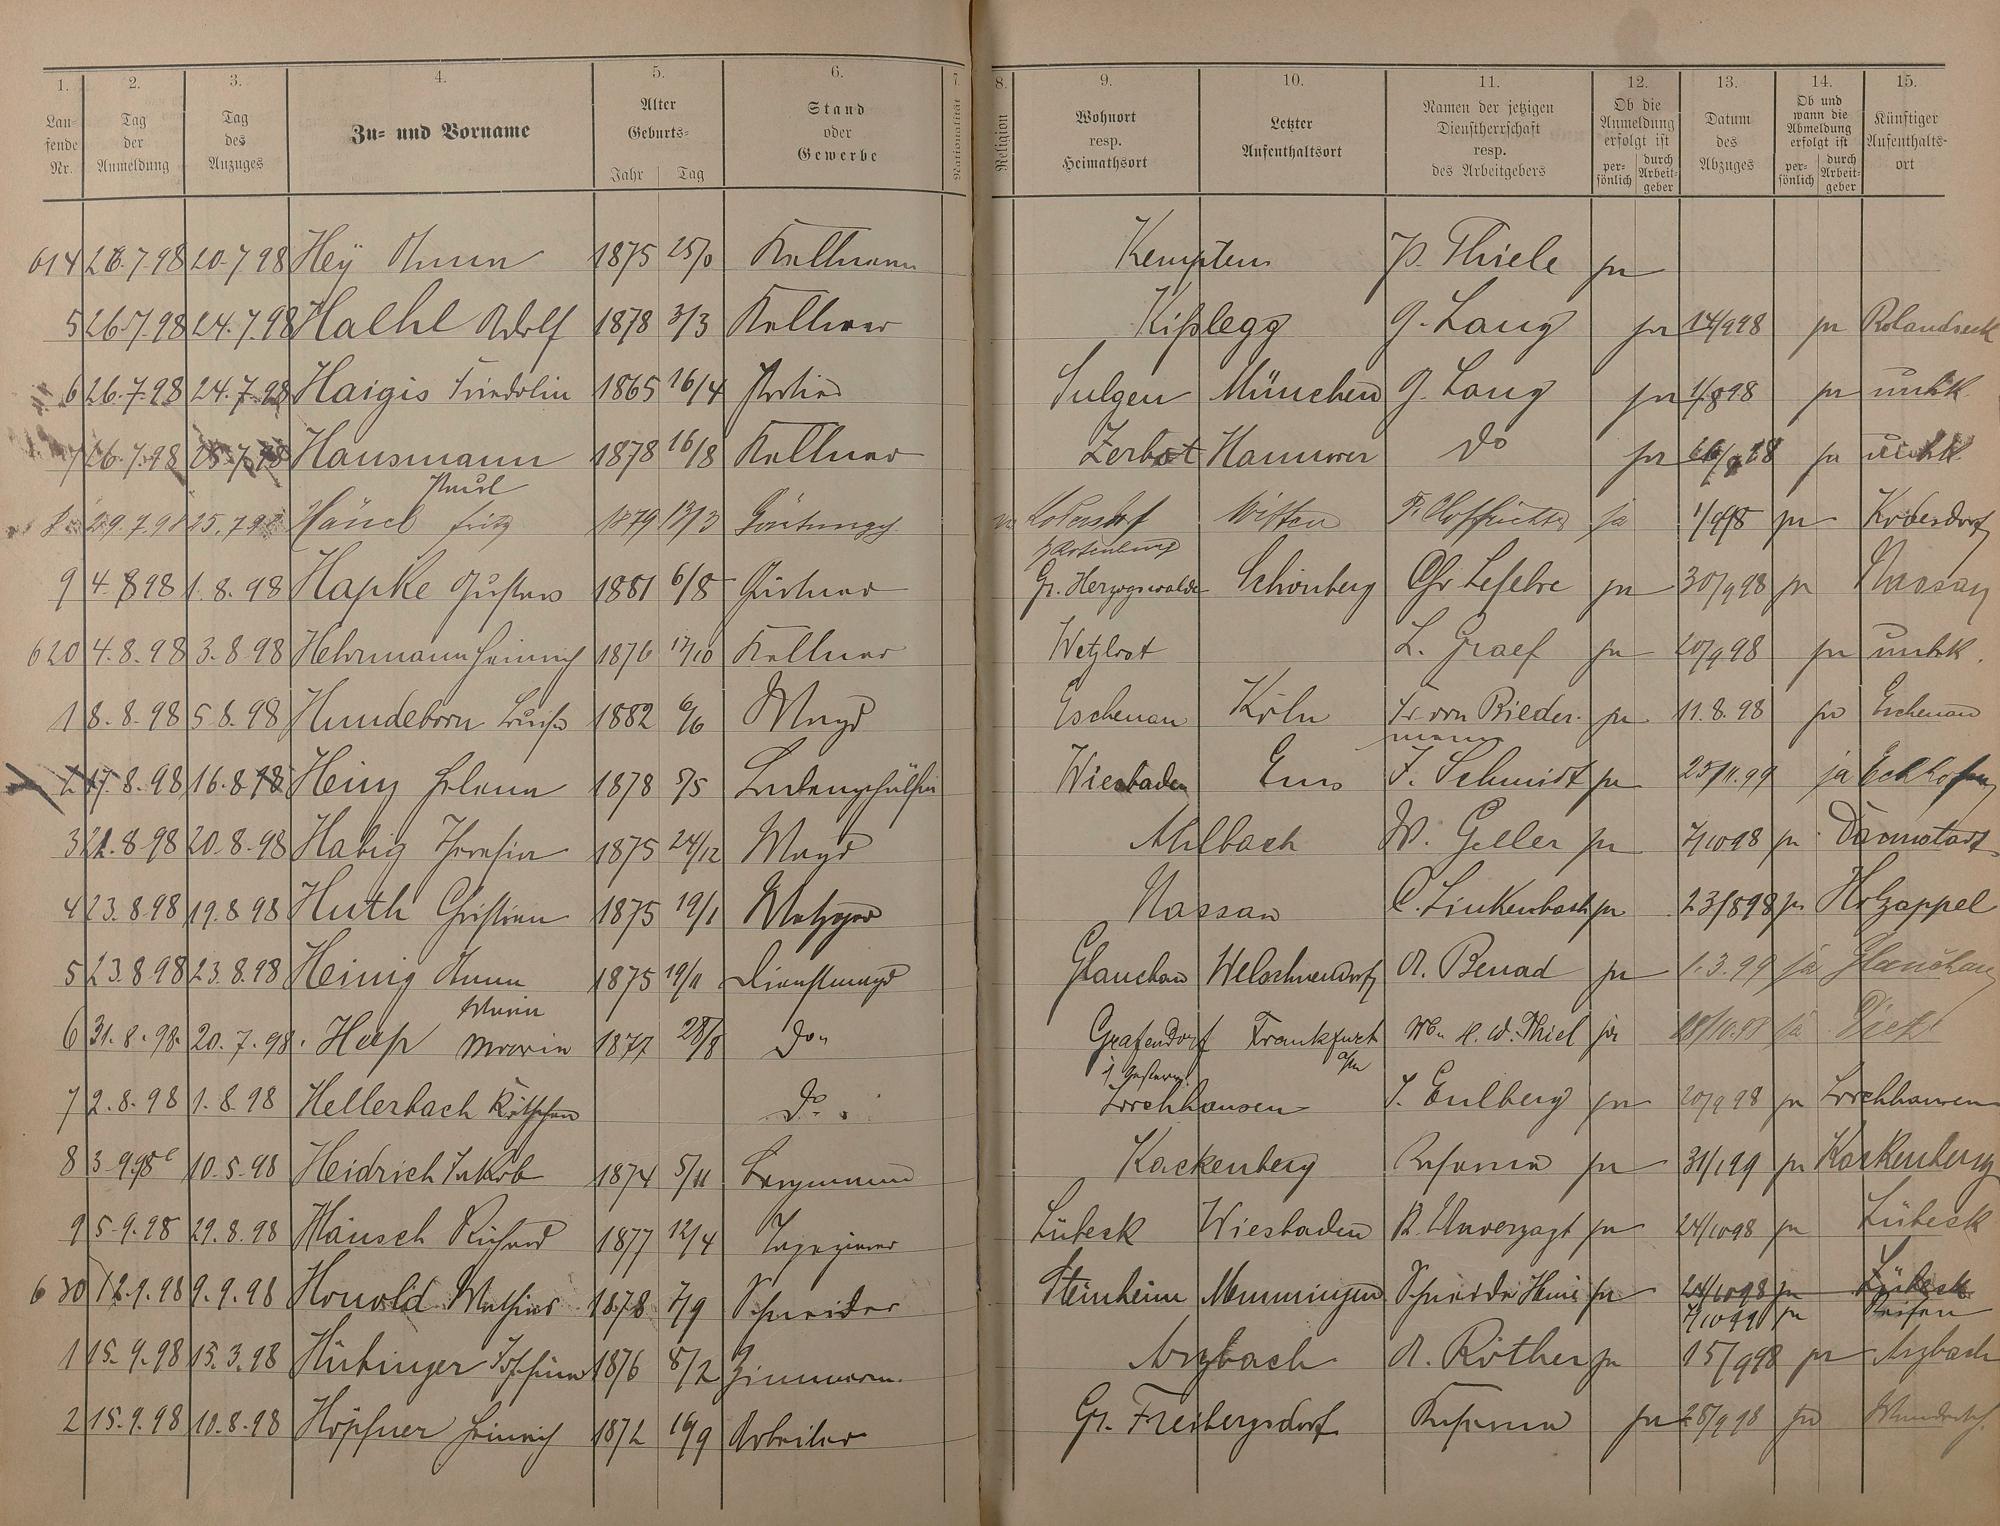 1. 2. 3. 4. 5. 6. 7. 8. 9. 10. 11. 12. 13. 14. 15.
Laufende Nr. Tag der Anmeldung Tag des Anzuges Zu- und Vorname Alter Geburts- Jahr Tag Stand oder Gewerbe Nationalität Religion Wohnort resp. Heimathsort Letzter Aufenthaltsort Namen der jetzigen Dienstherrschaft resp. des Arbeitgebers Ob die Anmeldung erfolgt ist persönlich durch Arbeitgeber Datum des Abzuges Ob und wann die Abmeldung erfolgt ist persönlich durch Arbeitgeber Künftiger Aufenthaltsort
614 26.7.98 20.7.98 Hey Anna 1875 Kellnerin Kempten P. Thiele ja
5 26.7.98 24.7.98 Haehl Adolf 1878 3/3 Kellner Kißlegg G. Lang ja 14/9 98 ja Rolandseck
6 26.7.98 24.7.98 Haigis Friedolin 1865 16/4 Portier Sulgen München G. Lang ja 1/8 98 ja unbk.
7 26.7.98 25.7.98 Hausmann Paul 1878 16/8 Kellner Zerbst Hannover do ja unbk.
8 29.7.98 25.7.98 Hänel Fritz 1879 13/3 Kodersdorf Witten ja 1/9 98 ja Kodersdorf
9 4.8.98 1.8.98 Hapke Gustav 1881 6/8 Gärtner Gr. Herzogswalde Schönberg Chr Lefebre ja 30/9 98 ja Nassau
620 4.8.98 3.8.98 Hehrmann Heinrich 1876 17/10 Kellner Wetzlar L. Graef ja 20/9 98 ja unbk.
1 8.8.98 5.8.98 Hundeborn Louise 1882 6/6 Magd Eschenau Köln Fr. von Riedermann ja 11.8.98 ja Eschenau
2 17.8.98 16.8.98 Heinz Helena 1878 5/5 Ladengehülfin Wiesbaden Ems F. Schmidt ja 25/11.99 ja Eckhofen
3 21.8.98 20.8.98 Habig Theresia 1875 24/12 Magd Ahlbach W. Geller ja 7/10 98 ja Darmstadt
4 23.8.98 19.8.98 Huth Christian 1875 19/1 Metzger Nassau C. Linkenbach ja 23/8 98 ja Holzappel
5 23.8.98 23.8.98 Heinig Anna 1875 19/11 Dienstmagd Glauchau Welschneudorf A. Benad ja 1.3.99 ja Glauchau
6 31.8.98. 20.7.98. Heep Maria 1877 28/8 do Grafendorf Frankfurt a/m Thiel ja 28/10.98 ja Diez
7 2.8.98 1.8.98 Hellerbach Käthchen do Lorchhausen J. Eulberg ja 20/9 98 ja Lorchhausen
8 3.9.98 10.5.98 Heidrich Jakob 1874 5/11 Bergmann Kackenberg ja 31/1 99 ja Kackenberg
9 5.9.98 29.8.98 Hänsch Richard 1877 12/4 Tapezierer Lübeck Wiesbaden R. Unverzagt ja 24/10 98 ja Lübeck
630 12.9.98 9.9.98 Honold Mathias 1878 7/9 Schneider Steinheim Memmingen ja 24/10 98 ja Lübeck
7/10 98 ja Reisen
1 15.9.98 15.3.98 Hübinger 1876 8/2 Zimmerm. Arzbach A. Röther ja 15/9 98 ja Arzbach
2 15.9.98 10.8.98 Höpfner Heinrich 1872 16/9 Arbeiter Gr. Freibergsdorf ja 28/9 98 ja